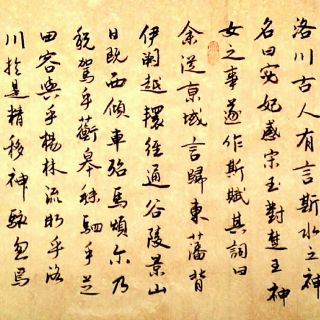 洛川古人有言斯水之神
名曰宓妃感宋玉對楚王神
女之事遂作斯賦其詞曰
余從京域言歸東藩背
伊闕越轘轅經通谷陵景山
日既西傾車殆馬煩尔乃
稅駕乎蘅皋秣駟乎芝
田容與乎楊林流眄乎洛
川於是精移神駭忽焉